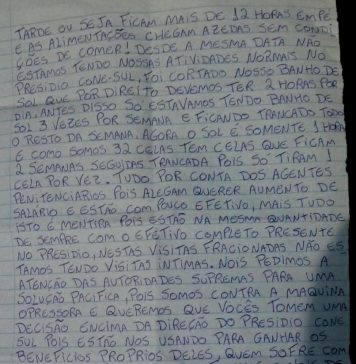 TARDE OU SEJA FICAM MAIS DE 12 HORAS EM PÉ
E AS ALIMENTAÇÕES CHEGAM AZEDAS SEM CONDI
ÇÕES DE COMER! DESDE A MESMA DATA NÃO
ESTAMOS TENDO NOSSAS ATIVIDADES NORMAIS NO
PRESIDIO CONE-SUL, FOI CORTADO NOSSO BANHO DE
SOL QUE POR DIREITO DEVEMOS TER 2 HORAS POR
DIA, ANTES DISSO SÓ ESTAVAMOS TENDO BANHO DE
SOL 3 VEZES POR SEMANA E FICANDO TRANCADO TODO
O RESTO DA SEMANA, AGORA O SOL É SOMENTE 1 HORA
E COMO SOMOS 32 CELAS TEM CELAS QUE FICAM
2 SEMANAS SEGUIDAS TRANCADA POIS SÓ TIRAM 1
CELA POR VEZ. TUDO POR CONTA DOS AGENTES
PENITENCIARIOS POIS ALEGAM QUERER AUMENTO DE
SALARIO E ESTÃO COM POUCO EFETIVO, MAIS TUDO
ISTO É MENTIRA POIS ESTÃO NA MESMA QUANTIDADE
DE SEMPRE COM O EFETIVO COMPLETO PRESENTE
NO PRESIDIO, NESTAS VISITAS FRACIONADAS NÃO ES
TAMOS TENDO VISITAS INTIMAS. NOIS PEDIMOS A
ATENÇÃO DAS AUTORIDADES SUPREMAS PARA UMA
SOLUÇÃO PACIFICA, POIS SOMOS CONTRA A MAQUINA
OPRESSORA E QUEREMOS QUE VOCÊS TOMEM UMA
DECISÃO ENCIMA DA DIREÇÃO DO PRESIDIO CONE
SUL POIS ESTÃO NOS USANDO PARA GANHAR OS
BENEFÍCIOS PROPRIOS DELES, QUEM SOFRE COM